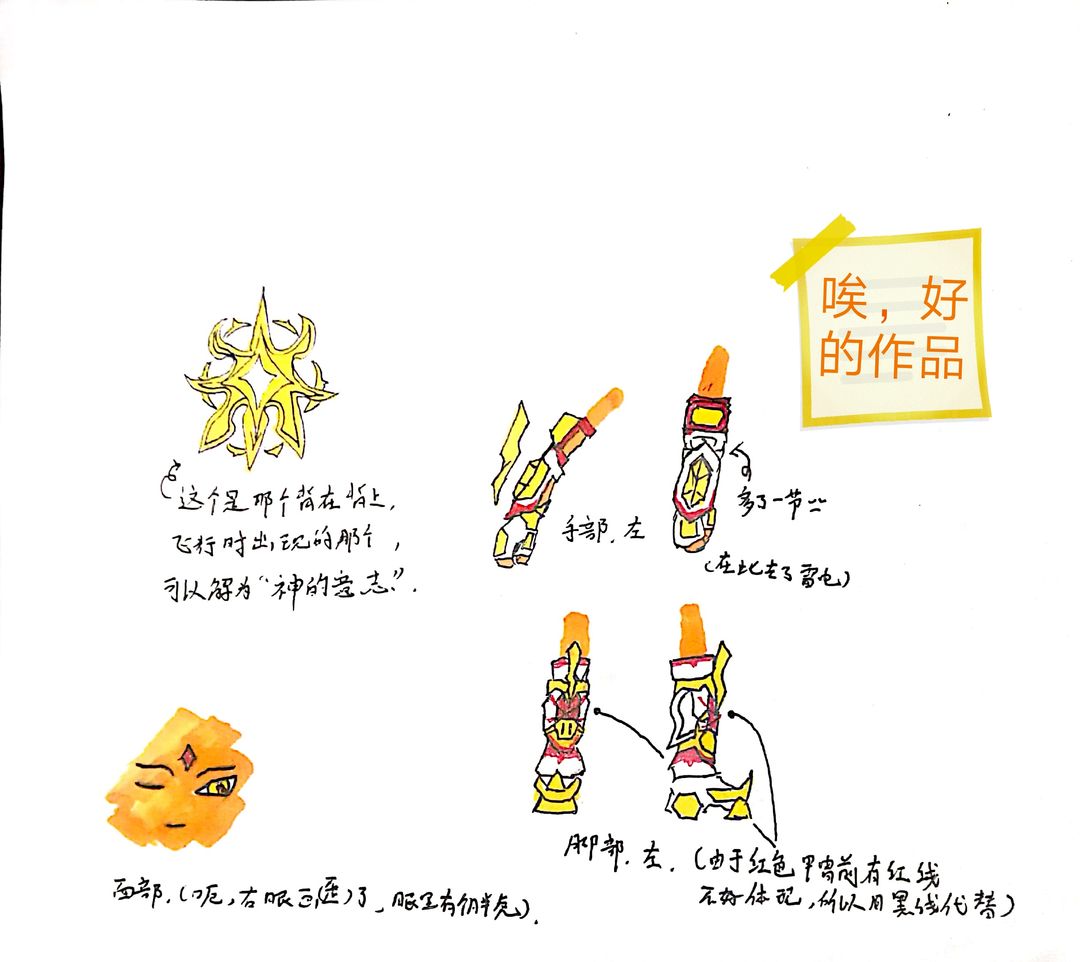 唉，好
的作品
这个是那个背在背上，
飞行时出现的那个，
可以解为“神的意志”.
手部.左
多了一节
(在此去了雷电)
脚部.左.
(由于红色甲胄前有红线
不好体配,所以用黑线代替)
面部.(呃,右眼画歪了,眼里有)